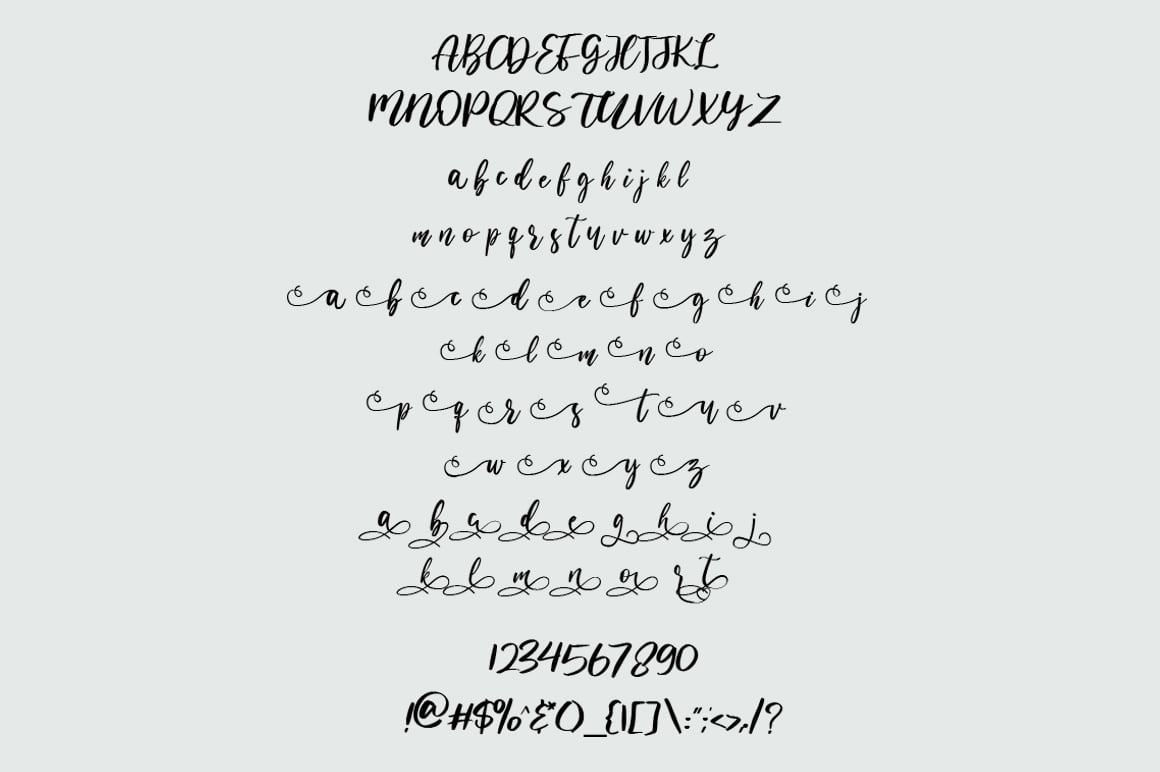 ABCDEFGHIJKL
MNOPQRSTUVWXYZ
abcdefghijkl
mnopqrstuvwxyz
abcdefghij
klmno
pqrstuv
wxyz
abcdeghij
klmnort
1234567890
!@#$%^&*()_{|[]\:";'<>,./?